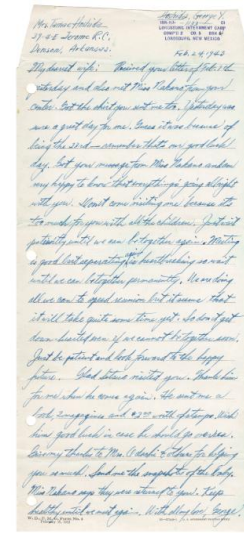 Hoshida, George Y.
LORDSBURG INTERNMENT CAMP
LORDSBURG, NEW MEXICO
Mrs. Tamae Hoshida
Denson, Arkansas.
Feb. 24, 1943
My dearest wife: Received your letter of Feb.
yesterday and also met Miss Nahara from your
center. Got the shirt you sent me too. Yesterday was
was a great day for me. Guess it was because of
being the 23rd - remember that's our good luck
day. Got your message from Miss Nahara and am
very happy to know that everything is going all right
with you. Don't come visiting me because it's
too much for you with all the children. Just wait
patiently until we can be together again. Meeting
is good but separating is heartbreaking so wait
until we can be together permanently. We are doing
all we can to speed reunion but it seems that
it will take quite some time yet. So don't get
down hearted even if we cannot be together soon.
Just be patient and look forward to the happy
future. Glad visited you. Thank him
for me when he comes again. He sent me a
book, magazines and to go. Wish
him good luck in case he should go overseas.
Give my thanks to Mrs. and others for helping
you so much. Send me the snapshots of the baby.
Miss Nahara says they were returned to you. Keep
healthy until we meet again. With all my love, George.